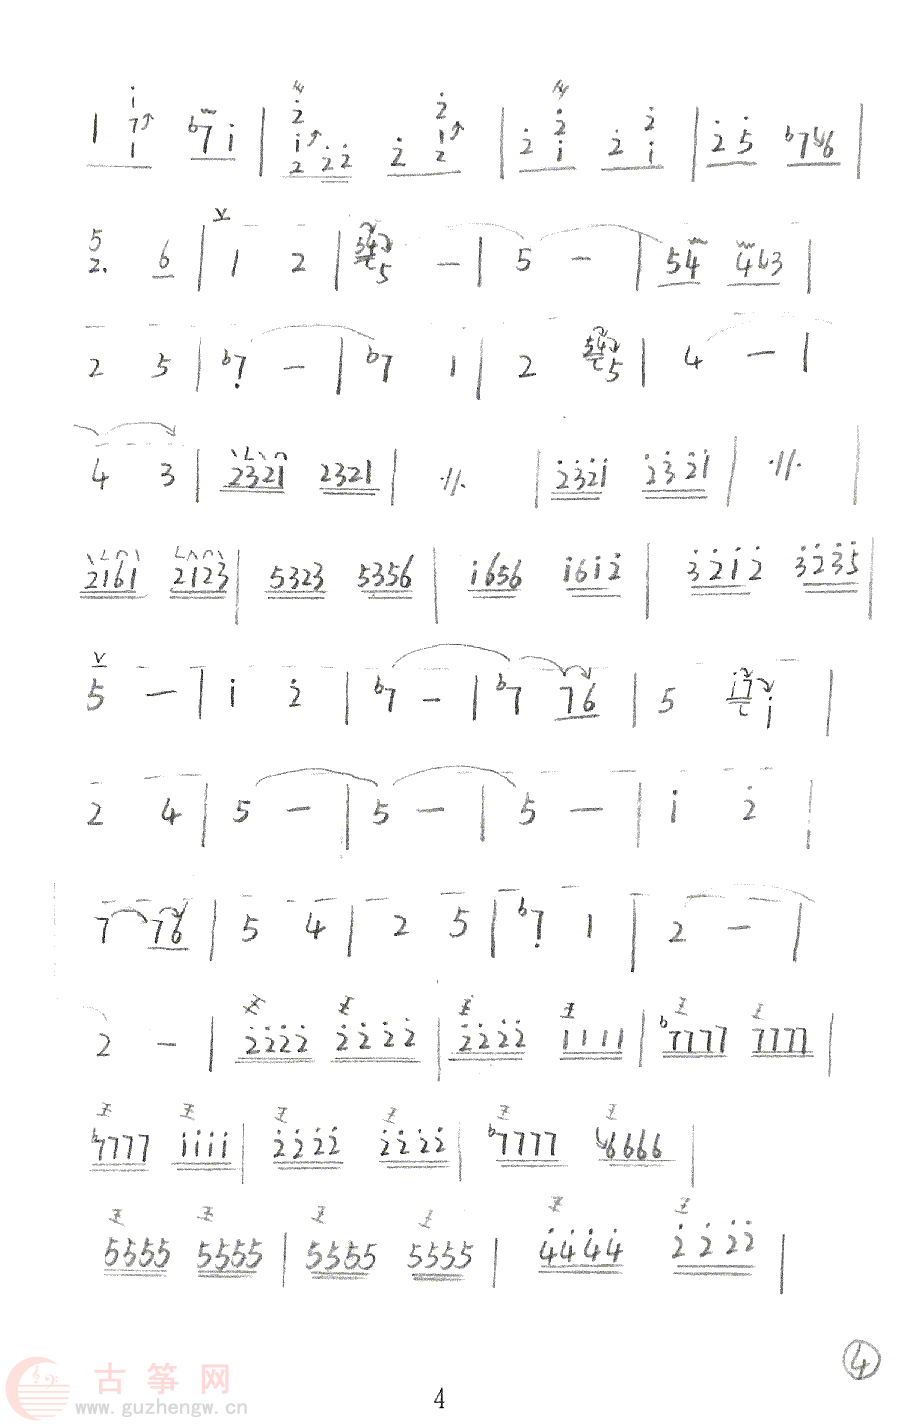 1 i71 b7 i | 2i2 2 2 2 212 | 2 2i 2 2i | 2 5 b7 6 |
5 2. 6 | 1 2 | 545 — | 5 — | 54 43 |
2 5 | b7 — | b7 1 | 2 545 | 4 — |
4 3 | 2321 2321 | ·//· | 2321 2321 | ·//· |
2161 2123 | 5323 5356 | i656 i6i2 | 32i2 3235 |
5 — | i 2 | b7 — | b7 76 | 5 i7i |
2 4 | 5 — | 5 — | 5 — | i 2 |
7 76 | 5 4 | 2 5 | b7 1 | 2 — |
2 — | 2222 2222 | 2222 1111 | b7777 7777 |
b7777 iiii | 2222 2222 | b7777 6666 |
5555 5555 | 5555 5555 | 4444 2222 |
④
古筝网
www.guzhengw.cn
4